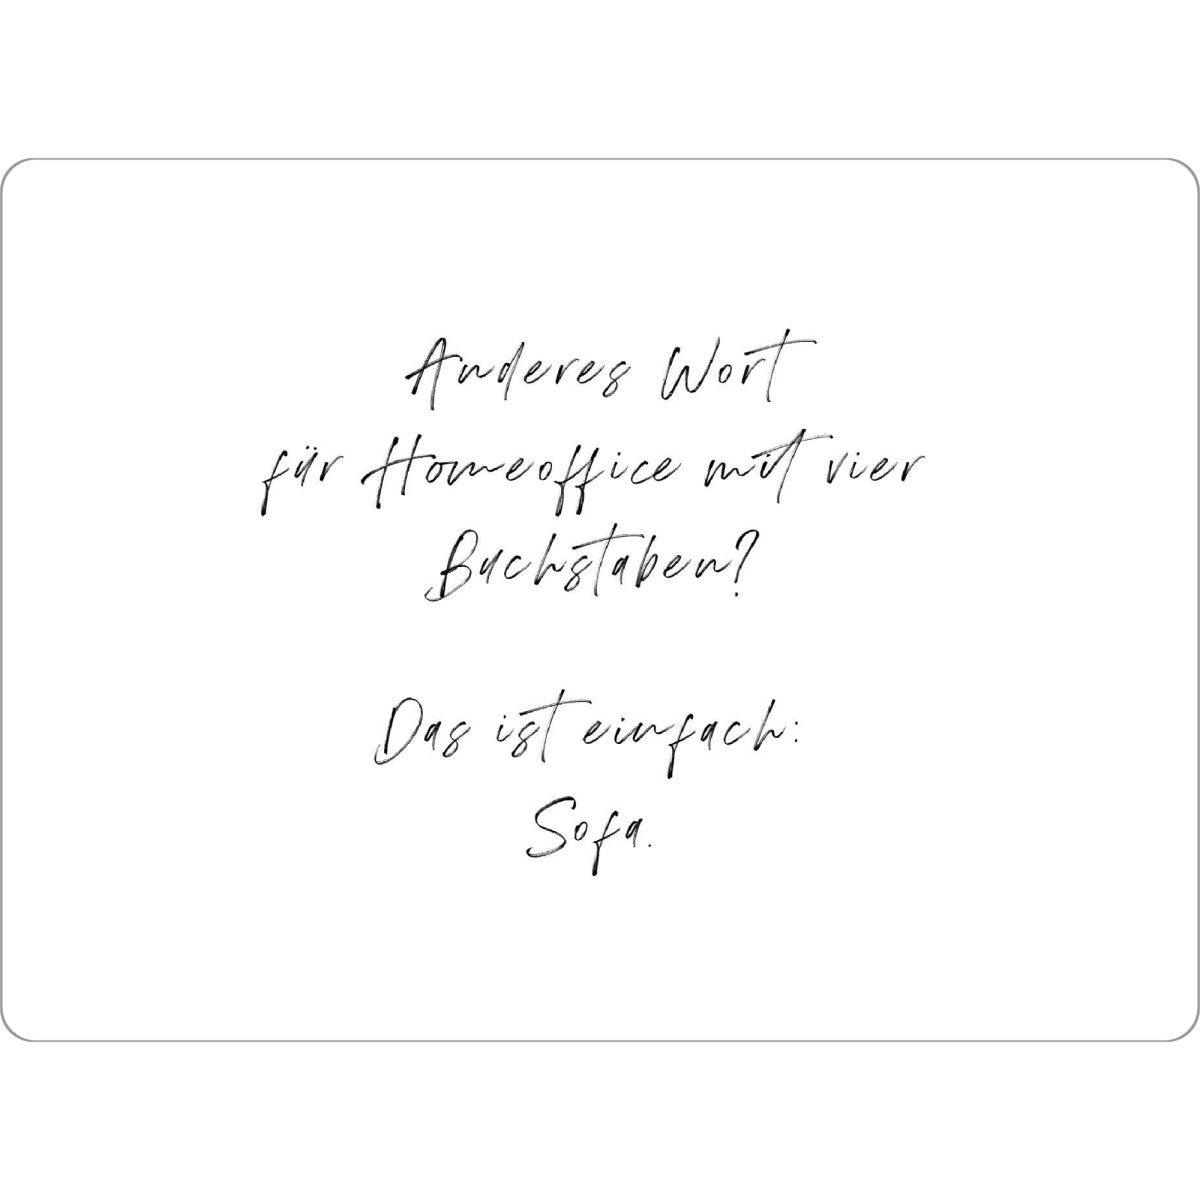 Anderes Wort
für Homeoffice mit vier
Buchstaben?
Das ist einfach:
Sofa.